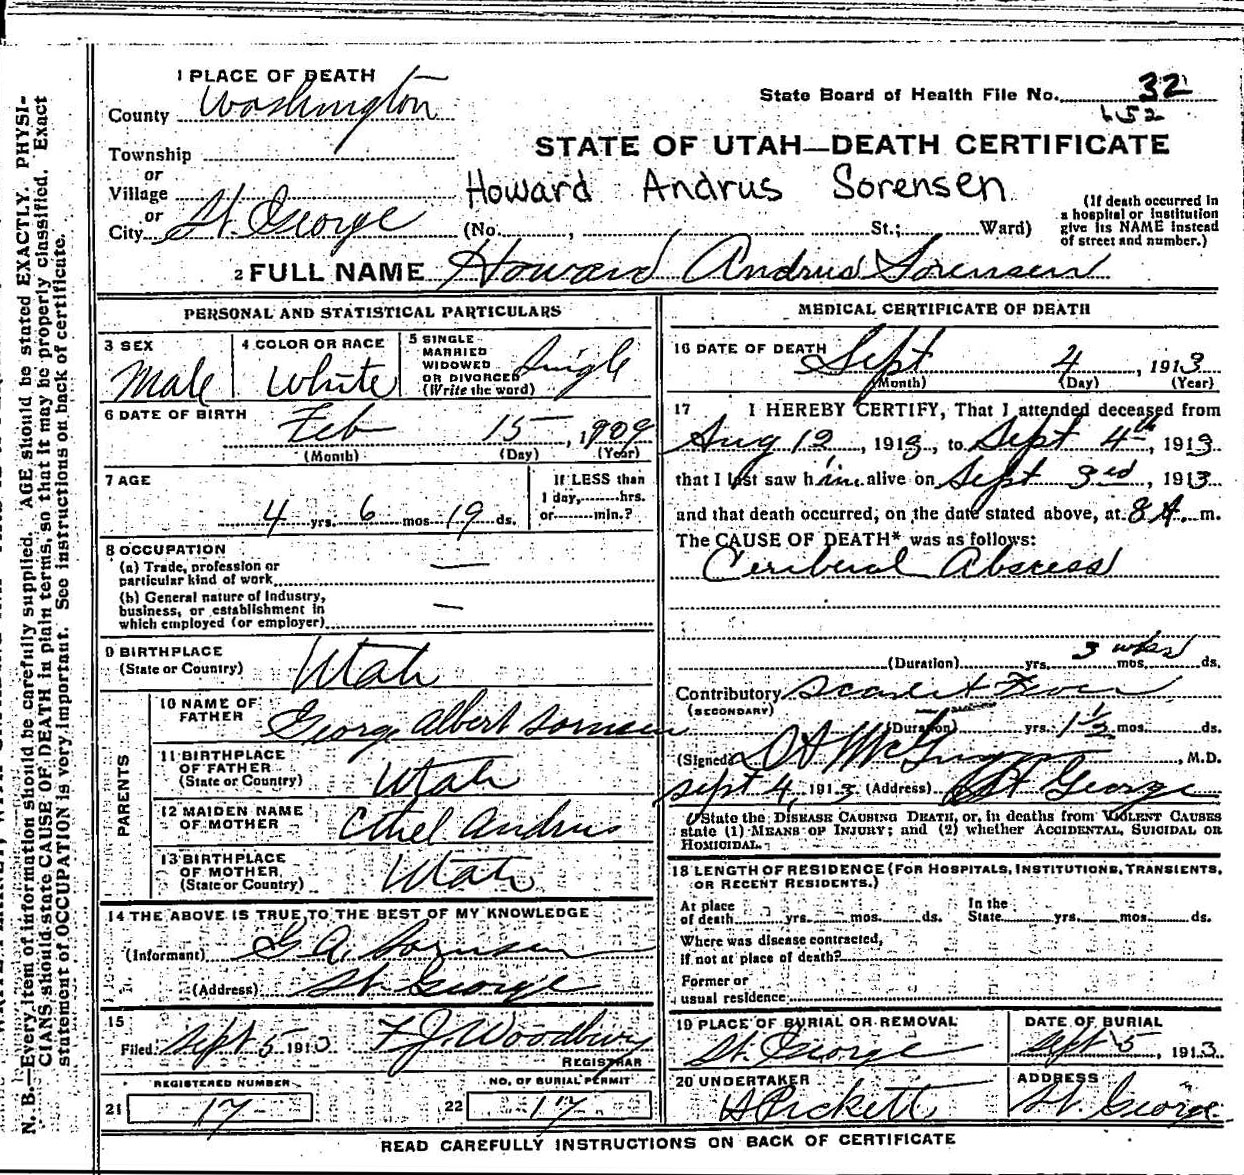 1 PLACE OF DEATH
County Washington
State Board of Health File No. 32
652
Township
or
Village
or
City St. George
STATE OF UTAH—DEATH CERTIFICATE
Howard Andrus Sorensen
(No. , St.; Ward)
(If death occurred in
a hospital or institution
give its NAME instead
of street and number.)
2 FULL NAME Howard Andrus Sorensen
PERSONAL AND STATISTICAL PARTICULARS
3 SEX
Male
4 COLOR OR RACE
White
5 SINGLE
MARRIED
WIDOWED
OR DIVORCED
(Write the word)
Single
6 DATE OF BIRTH
Feb 15, 1909
(Month) (Day) (Year)
7 AGE
4 yrs. 6 mos. 19 ds.
If LESS than
1 day, hrs.
or min.?
8 OCCUPATION
(a) Trade, profession or
particular kind of work —
(b) General nature of industry,
business, or establishment in
which employed (or employer) —
9 BIRTHPLACE
(State or Country)
Utah
PARENTS
10 NAME OF
FATHER
George Albert Sorensen
11 BIRTHPLACE
OF FATHER
(State or Country)
Utah
12 MAIDEN NAME
OF MOTHER
Ethel Andrus
13 BIRTHPLACE
OF MOTHER
(State or Country)
Utah
14 THE ABOVE IS TRUE TO THE BEST OF MY KNOWLEDGE
(Informant) G A Sornsen
(Address) St. George
15
Filed Sept 5 1913 F. J. Woodbury
REGISTRAR
REGISTERED NUMBER
21 17
NO. OF BURIAL PERMIT
22 17
MEDICAL CERTIFICATE OF DEATH
16 DATE OF DEATH Sept 4, 1913
(Month) (Day) (Year)
17 I HEREBY CERTIFY, That I attended deceased from
Aug 12, 1913, to Sept 4th, 1913
that I last saw him alive on Sept 3rd, 1913
and that death occurred, on the date stated above, at 8 A. m.
The CAUSE OF DEATH* was as follows:
Ceriberal Abscess
(Duration) yrs. 3 wks mos. ds.
Contributory Scarlet Fever
(SECONDARY)
(Duration) yrs. 1 1/2 mos. ds.
(Signed), M.D.
Sept 4, 1913 (Address) St George
State the DISEASE CAUSING DEATH, or, in deaths from VIOLENT CAUSES
state (1) MEANS OF INJURY; and (2) whether ACCIDENTAL, SUICIDAL OR
HOMICIDAL.
18 LENGTH OF RESIDENCE (FOR HOSPITALS, INSTITUTIONS, TRANSIENTS,
OR RECENT RESIDENTS.)
At place
of death yrs. mos. ds.
In the
State yrs. mos. ds.
Where was disease contracted,
if not at place of death?
Former or
usual residence
19 PLACE OF BURIAL OR REMOVAL
St. George
DATE OF BURIAL
Sept 5, 1913
20 UNDERTAKER
A Pickett
ADDRESS
St. George
READ CAREFULLY INSTRUCTIONS ON BACK OF CERTIFICATE
N. B.—Every item of information should be carefully supplied. AGE should be stated EXACTLY. PHYSI-
CIANS should state CAUSE OF DEATH in plain terms, so that it may be properly classified. Exact
statement of OCCUPATION is very important. See instructions on back of certificate.